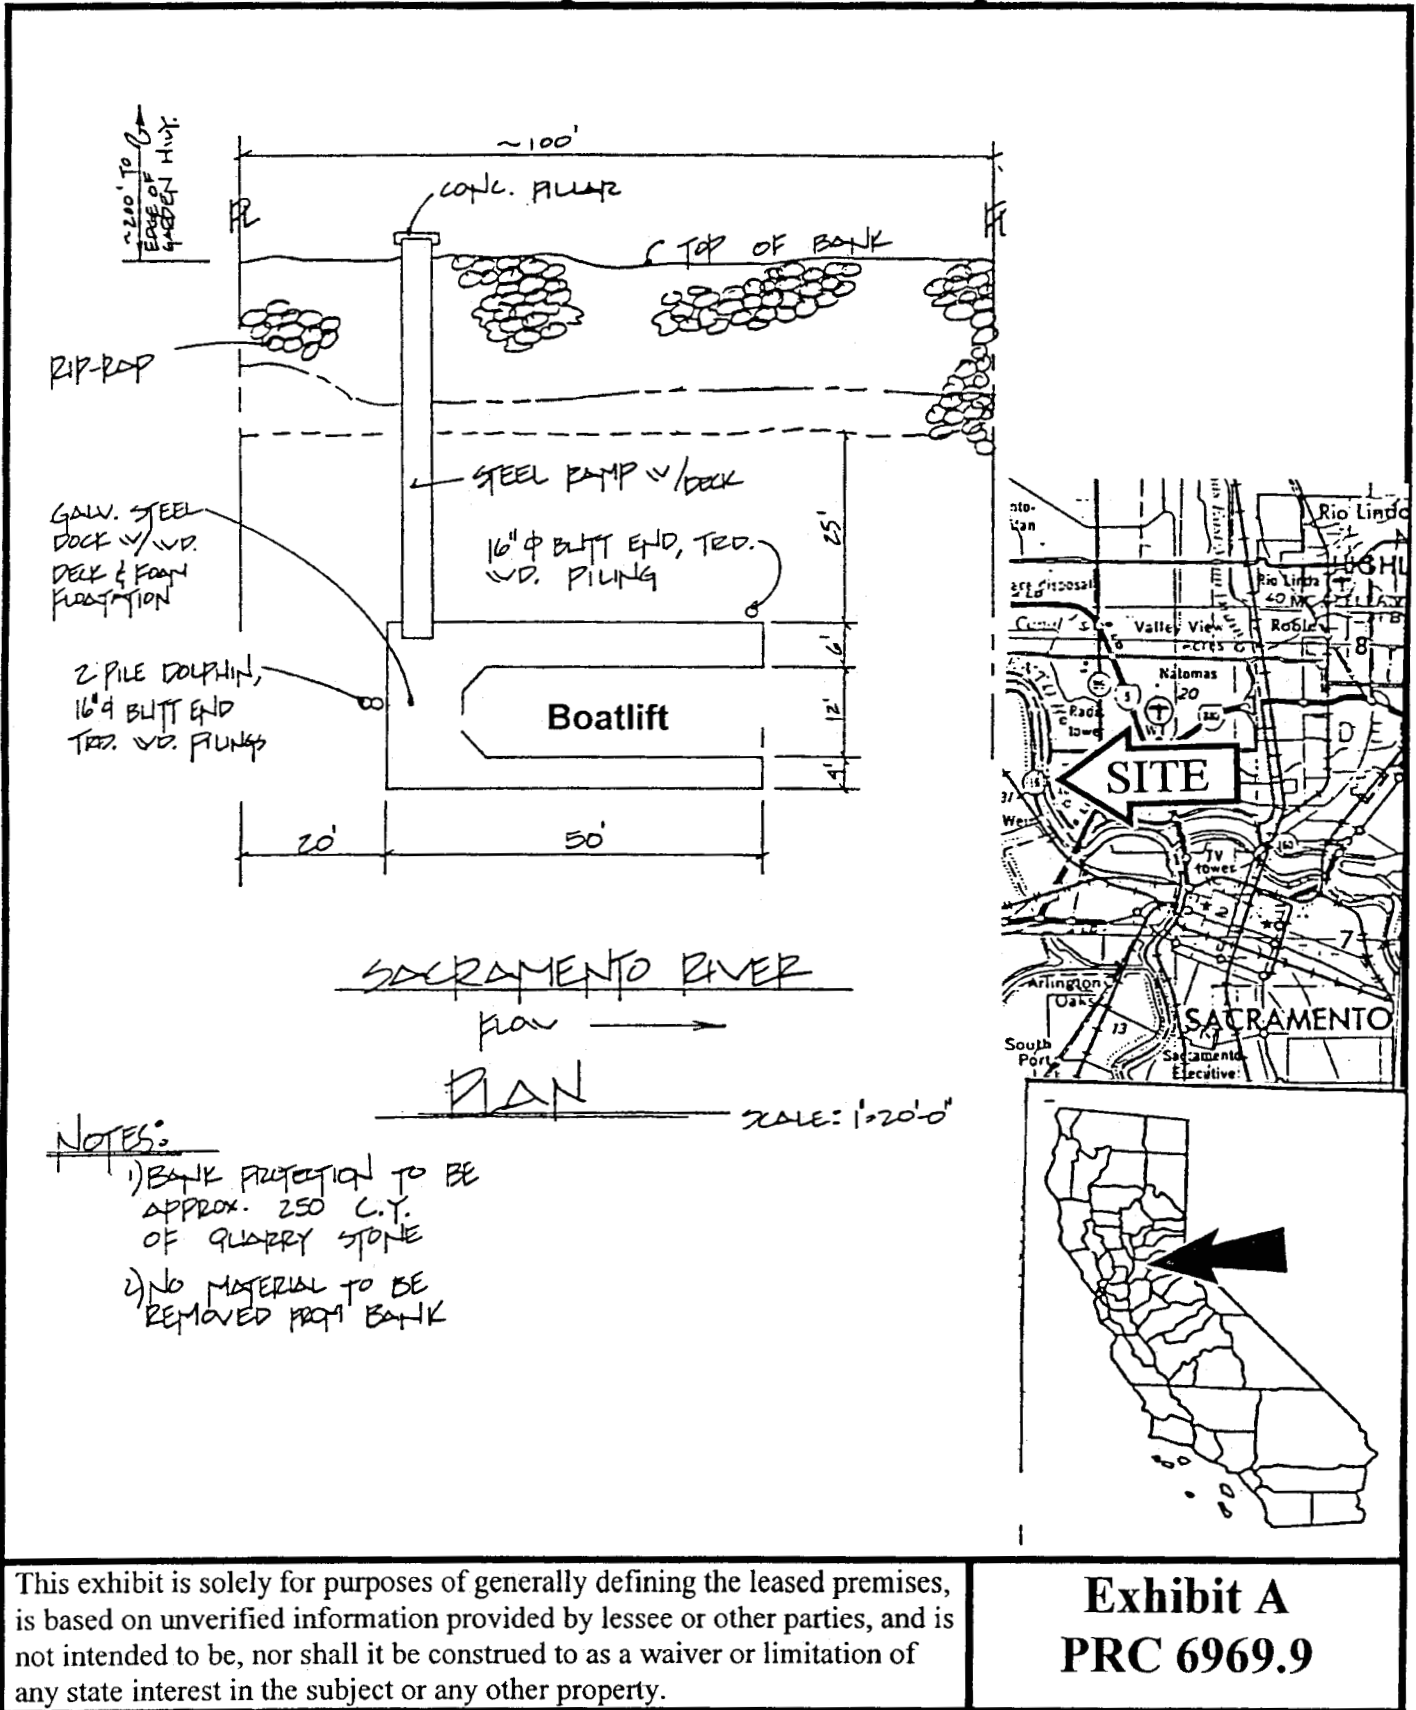 ~200' TO
EDGE OF
GARDEN HWY.
~100'
PL
PL
CONC. PILLAR
TOP OF BANK
RIP-RAP
STEEL RAMP W/DECK
GALV. STEEL
DOCK W/WD.
DECK & FOAM
FLOATATION
16"φ BUTT END, TRD.
WD. PILING
25'
6'
12'
4'
2 PILE DOLPHIN,
16"φ BUTT END
TRD. WD. PILINGS
Boatlift
20'
50'
SACRAMENTO RIVER
FLOW
PLAN
SCALE: 1"=20'-0"
NOTES:
1) BANK PROTECTION TO BE
APPROX. 250 C.Y.
OF QUARRY STONE
2) NO MATERIAL TO BE
REMOVED FROM BANK
Rio Lindo
Rio Linda
Valley View
Acres
Robles
8
Natomas
20
5
SITE
TV
tower
2
7
Arlington
Oaks
13
SACRAMENTO
South
Port
Sacramento
Executive
This exhibit is solely for purposes of generally defining the leased premises,
is based on unverified information provided by lessee or other parties, and is
not intended to be, nor shall it be construed to as a waiver or limitation of
any state interest in the subject or any other property.
Exhibit A
PRC 6969.9